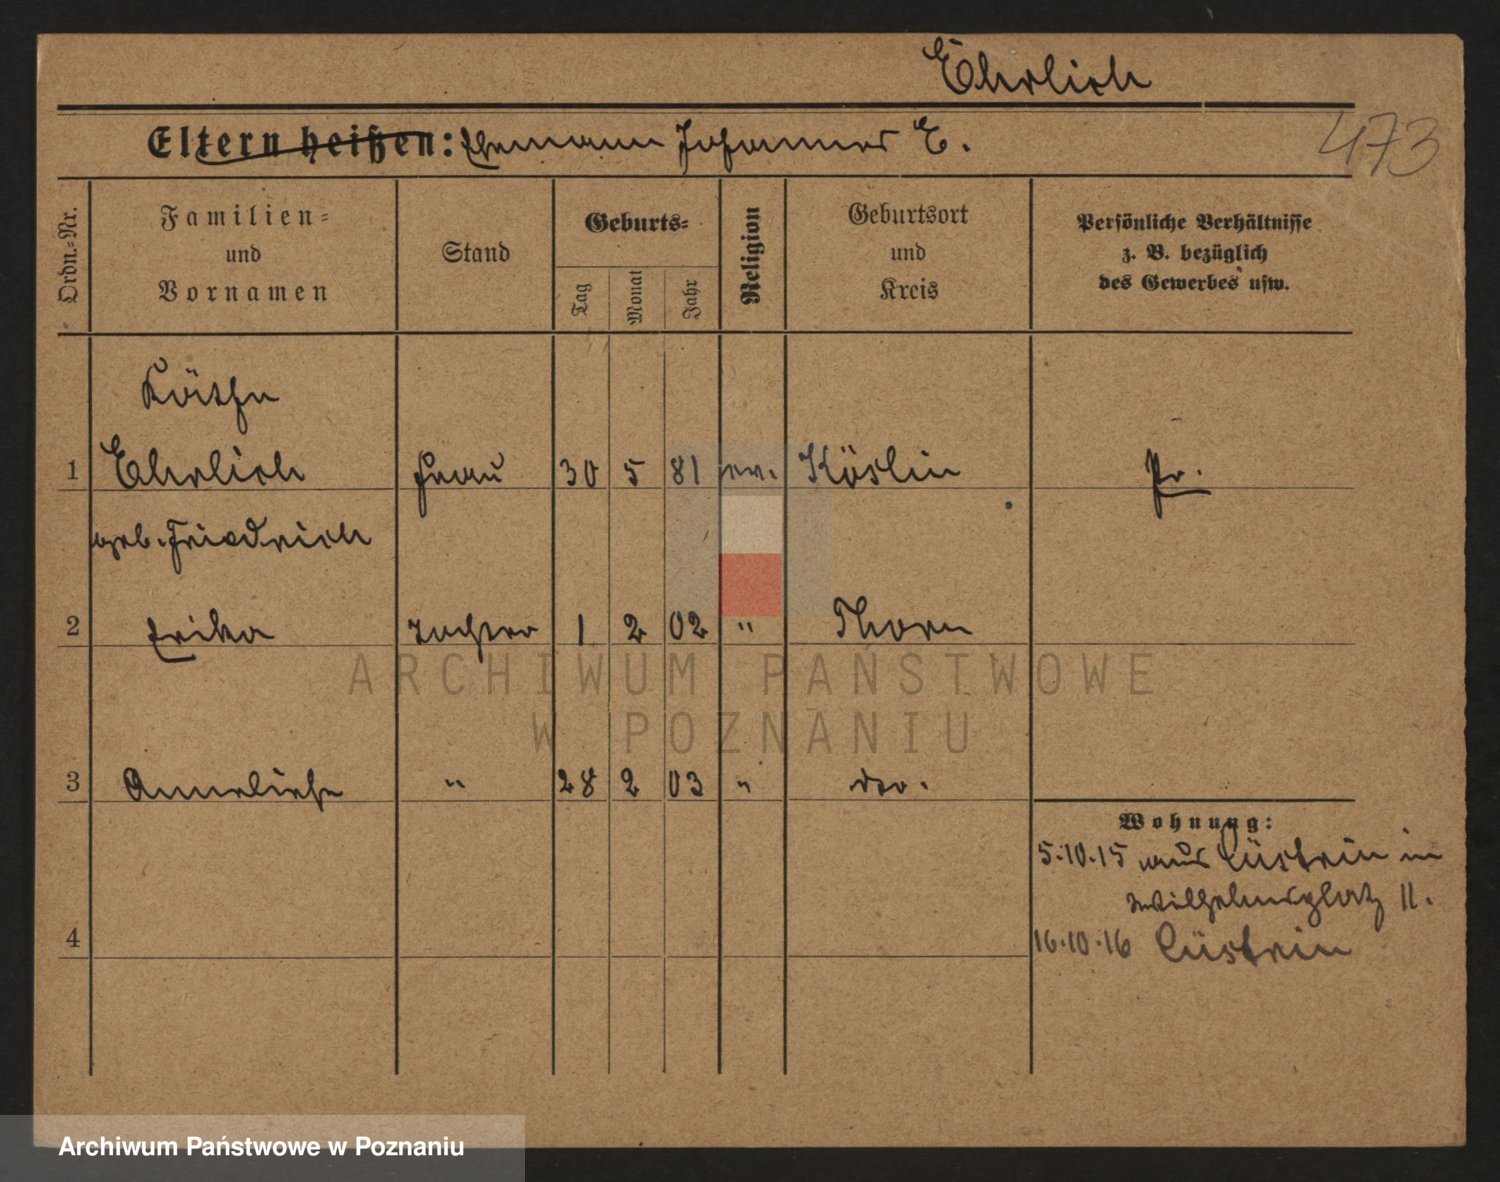 Ehrlich
Eltern heißen: Ehemann Johannes E.
473
Ordn.-Nr.
Familien-
und
Vornamen
Stand
Geburts-
Tag
Monat
Jahr
Religion
Geburtsort
und
Kreis
Persönliche Verhältnisse
z. B. bezüglich
des Gewerbes usw.
Käthe
1 Ehrlich Frau 30 5 81 ev. Köslin Pr.
geb. Friedrich
2 Erika Tochter 1 2 02 " Thorn
ARCHIWUM PAŃSTWOWE
W POZNANIU
3 Anneliese " 28 2 03 " do.
Wohnung:
5.10.15 aus Cüstrin in
Wilhelmsplatz 11.
4
16.10.16 Cüstrin
Archiwum Państwowe w Poznaniu